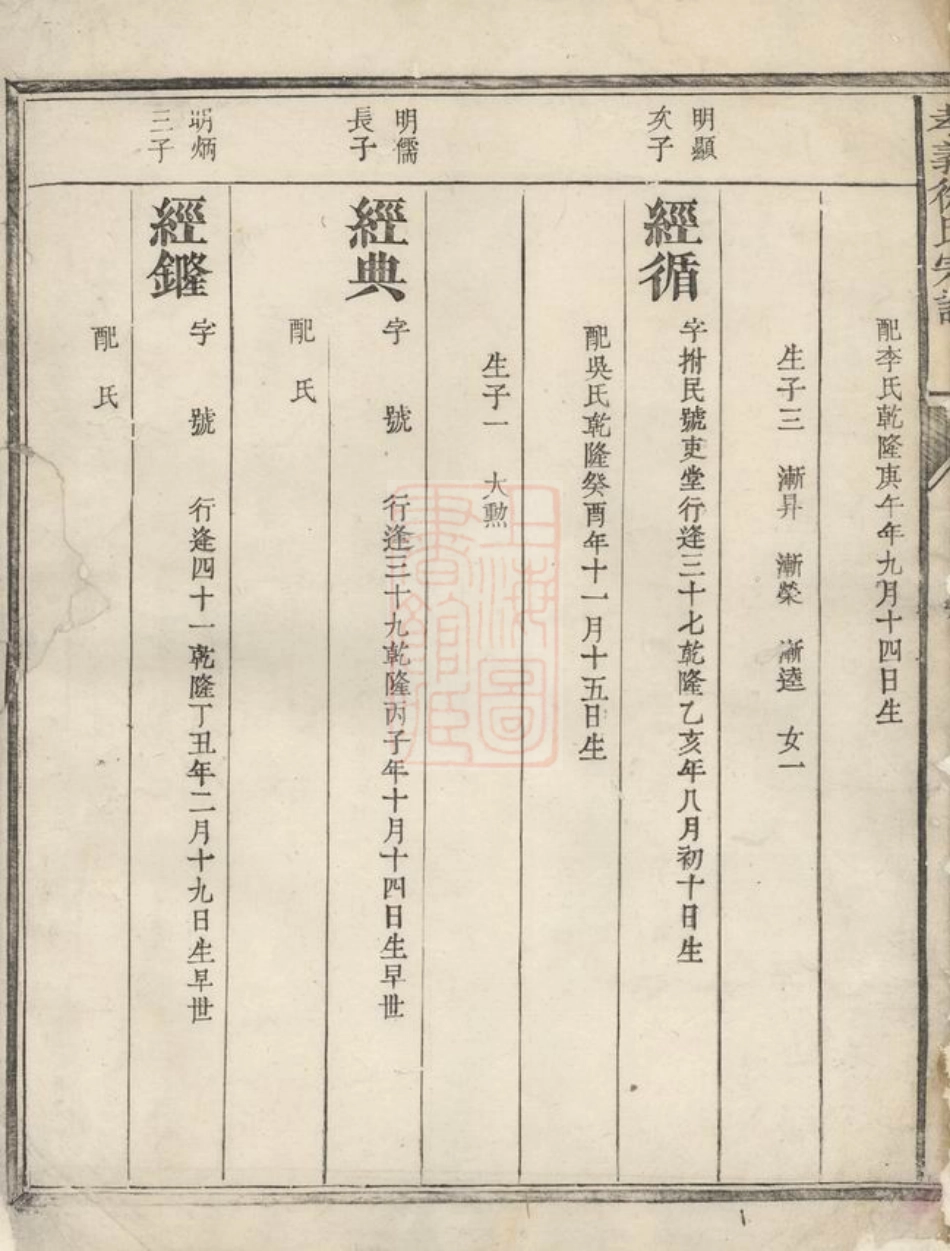 孝義徐氏宗譜
配李氏乾隆庚午年九月十四日生
生子三 漸昇 漸榮 漸逵 女一
明顯
次子
經循 字拊民號吏堂行逢三十七乾隆乙亥年八月初十日生
配吳氏乾隆癸酉年十一月十五日生
生子一 大勲
明儒
長子
經典 字 號 行逢三十九乾隆丙子年十月十四日生早世
配 氏
明炳
三子
經 字 號 行逢四十一乾隆丁丑年二月十九日生早世
配 氏
上海圖
書館藏